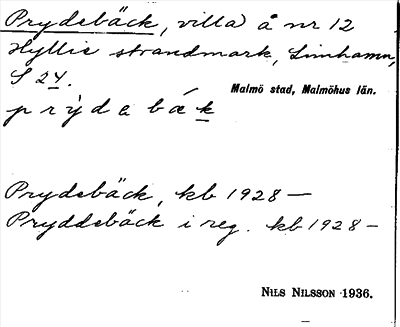 Prydebäck, villa å nr 12
Hyllie strandmark, Limhamn,
S 24.
Malmö stad, Malmöhus län.
prỳdabǽk
Prydebäck, kb 1928 —
Pryddebäck i reg. kb 1928 —
NILS NILSSON 1936.